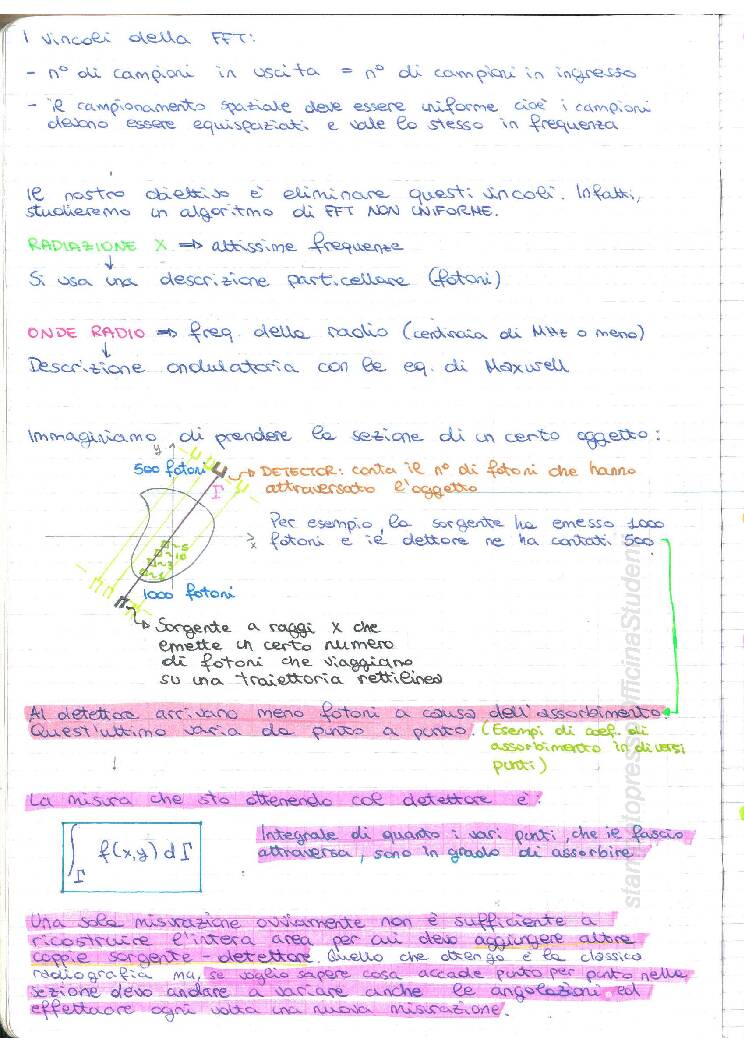 I vincoli della FFT:
- n° di campioni in uscita = n° di campioni in ingresso
- il campionamento spaziale deve essere uniforme cioè i campioni
devono essere equispaziati e vale lo stesso in frequenza
Il nostro obiettivo è eliminare questi vincoli. Infatti,
studieremo un algoritmo di FFT NON UNIFORME.
RADIAZIONE X => altissime frequenze
Si usa una descrizione particellare (fotoni)
ONDE RADIO => freq. della radio (centinaia di MHz o meno)
Descrizione ondulatoria con le eq. di Maxwell
Immaginiamo di prendere la sezione di un certo oggetto:
y
500 fotoni
DETECTOR: conta il n° di fotoni che hanno
attraversato l'oggetto
Γ
Per esempio, la sorgente ha emesso 1000
fotoni e il dettore ne ha contati 500
x
1000 fotoni
Sorgente a raggi X che
emette un certo numero
di fotoni che viaggiano
su una traiettoria rettilinea
Al detettore arrivano meno fotoni a causa dell'assorbimento.
Quest'ultimo varia da punto a punto. (Esempi di coef. di
assorbimento in diversi
punti)
La misura che sto ottenendo col detettore è:
∫Γ f(x,y) dΓ
Integrale di quanto i vari punti, che il fascio
attraversa, sono in grado di assorbire
Una sola misurazione ovviamente non è sufficiente a
ricostruire l'intera area per cui devo aggiungere altre
coppie sorgente - detettore. Quello che ottengo è la classica
radiografia ma, se voglio sapere cosa accade punto per punto nella
sezione devo andare a variare anche le angolazioni ed
effettuare ogni volta una nuova misurazione.